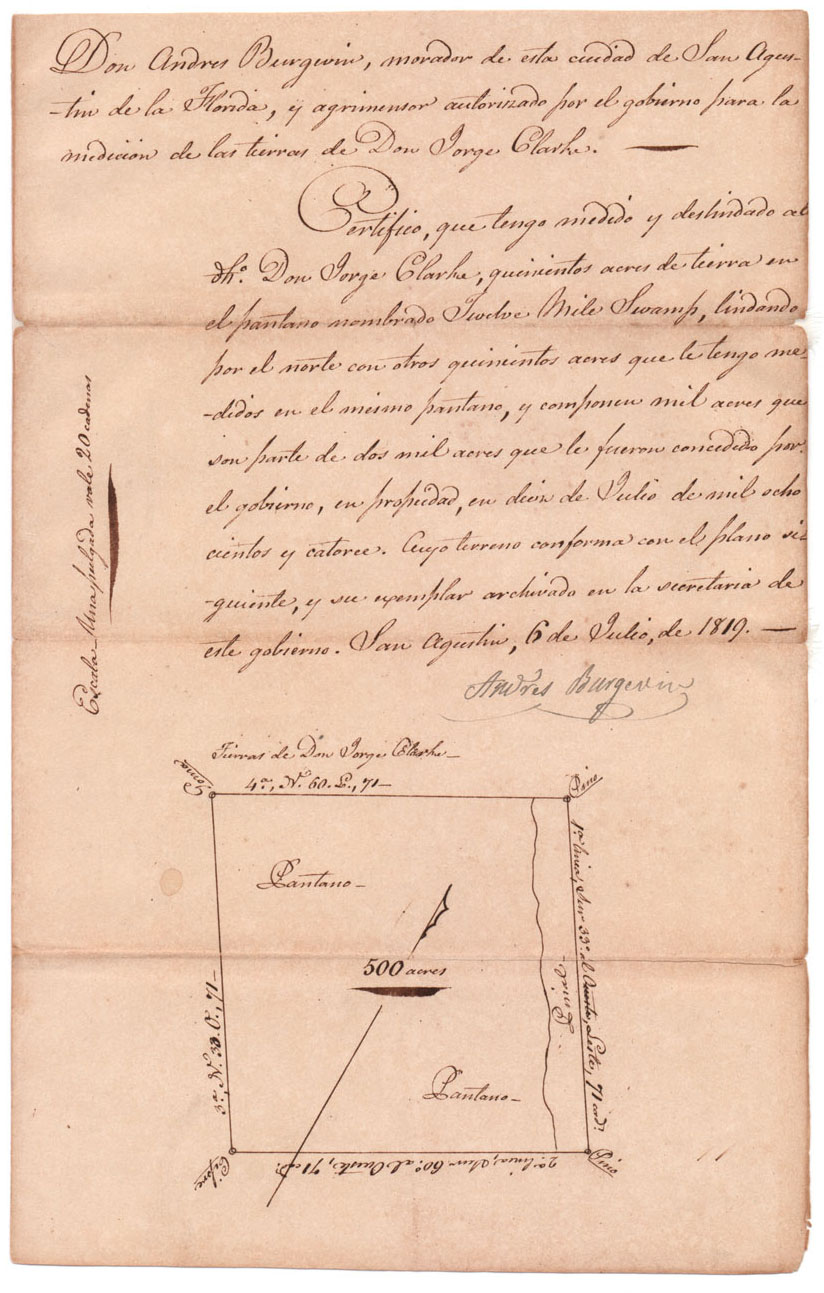 Don Andres Burgevin, morador de esta ciudad de San Agus-
-tin de la Florida, y agrimensor autorizado por el gobierno para la
medicion de las tierras de Don Jorge Clarke. —
Certifico, que tengo medido y deslindado al
dho. Don Jorge Clarke, quinientos acres de tierra en
el pantano nombrado Twelve Mile Swamp, lindando
por el norte con otros quinientos acres que le tengo me-
-didos en el mismo pantano, y componen mil acres que
son parte de dos mil acres que le fueron concedido por
el gobierno, en propiedad, en diez de Julio de mil ocho
cientos y catorce. Cuyo terreno conforma con el plano si-
-guiente, y su exemplar archivado en la secretaria de
este gobierno. San Agustin, 6 de Julio, de 1819. —
Andrés Burgevin
Escala — Una pulgada vale 20 cadenas
Tierras de Don Jorge Clarke —
4a, No. 60. E., 71 —
Goma
Pino
Pantano —
1a. linea, Sur 33o. al
71 cads.
500 acres
3a, No. 30. O., 71 —
Pantano —
Pinal —
Cipres
2a. linea, Sur 60o. al Oueste, 71 cd.
Pino